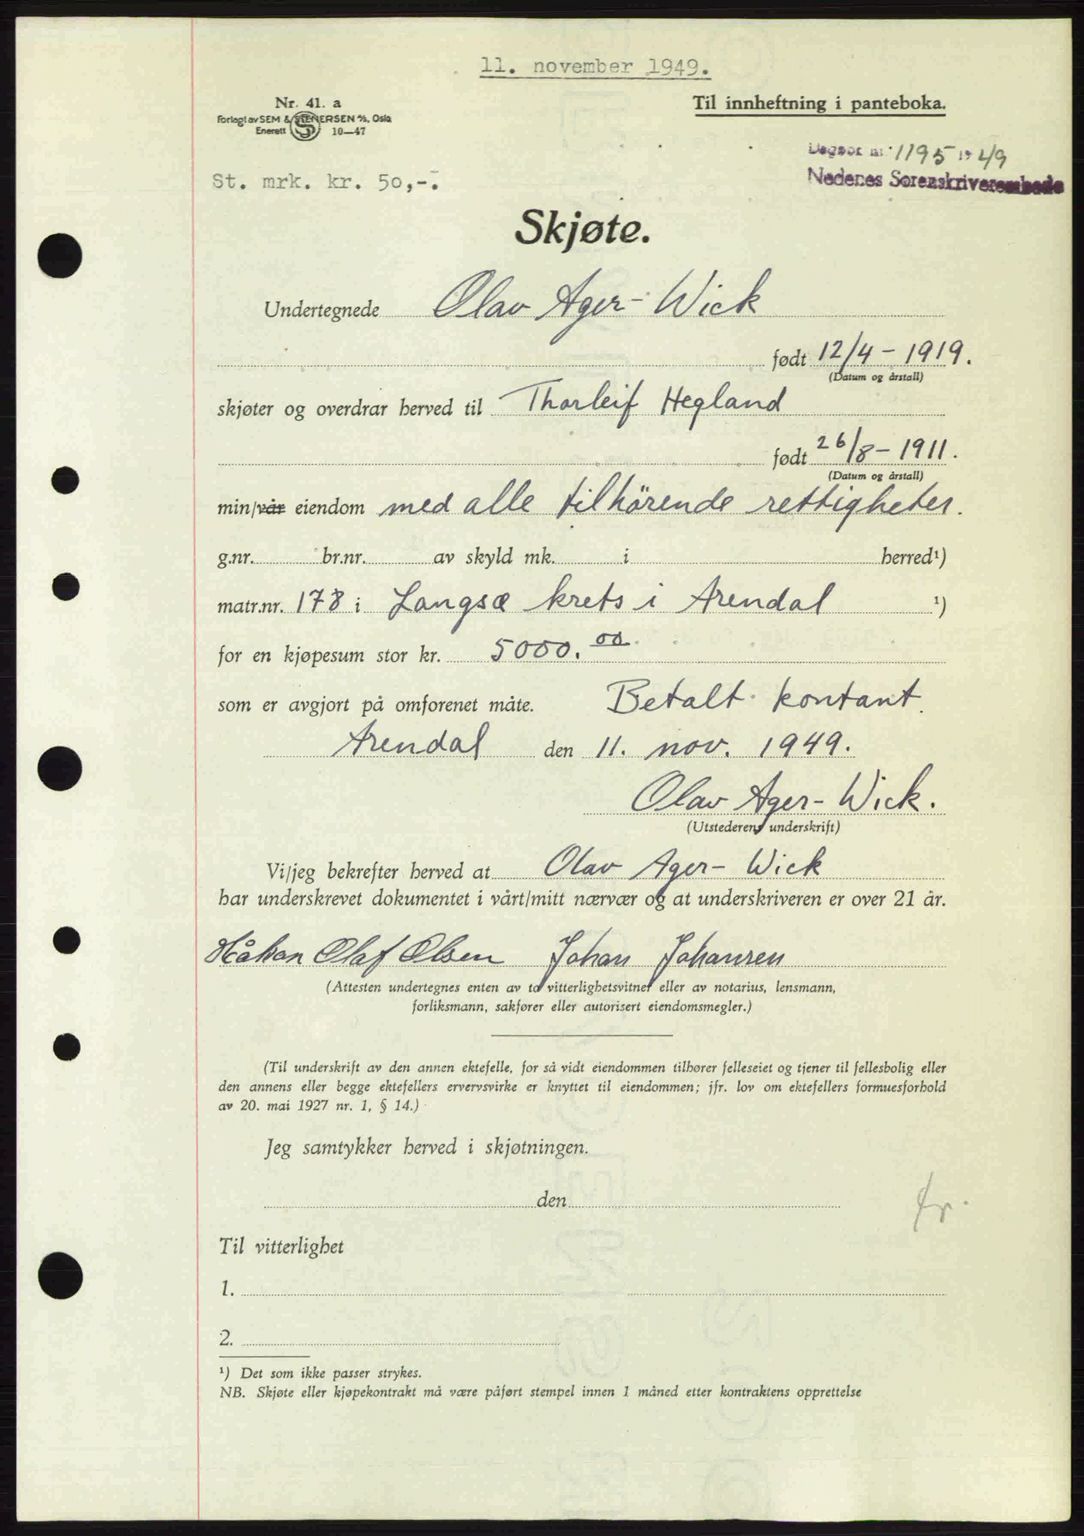 11. november 1949.
Nr. 41. a
Til innheftning i panteboka.
Forlagt av SEM & STENERSEN A/S, Oslo
Enerett 10—47
Dagbok nr. 1195 19 49
St. mrk. kr. 50,-.
Nedenes Sorenskriverembede
Skjøte.
Undertegnede Olav Ager-Wick
født 12/4 - 1919.
(Datum og årstall)
skjøter og overdrar herved til Thorleif Hegland
født 26/8 - 1911.
(Datum og årstall)
min/vår eiendom med alle tilhörende rettigheter.
g.nr. br.nr. av skyld mk. i herred¹)
matr.nr. 178 i Langsæ krets i Arendal ¹)
for en kjøpesum stor kr. 5000.00
som er avgjort på omforenet måte. Betalt kontant.
Arendal den 11. nov. 1949.
Olav Ager-Wick.
(Utstederens underskrift)
Vi/jeg bekrefter herved at Olav Ager-Wick
har underskrevet dokumentet i vårt/mitt nærvær og at underskriveren er over 21 år.
Håkon Olaf Olsen Johan Johansen
(Attesten undertegnes enten av to vitterlighetsvitner eller av notarius, lensmann,
forliksmann, sakfører eller autorisert eiendomsmegler.)
(Til underskrift av den annen ektefelle, for så vidt eiendommen tilhører felleseiet og tjener til fellesbolig eller
den annens eller begge ektefellers ervervsvirke er knyttet til eiendommen; jfr. lov om ektefellers formuesforhold
av 20. mai 1927 nr. 1, § 14.)
Jeg samtykker herved i skjøtningen.
den
Til vitterlighet
1.
2.
¹) Det som ikke passer strykes.
NB. Skjøte eller kjøpekontrakt må være påført stempel innen 1 måned etter kontraktens opprettelse